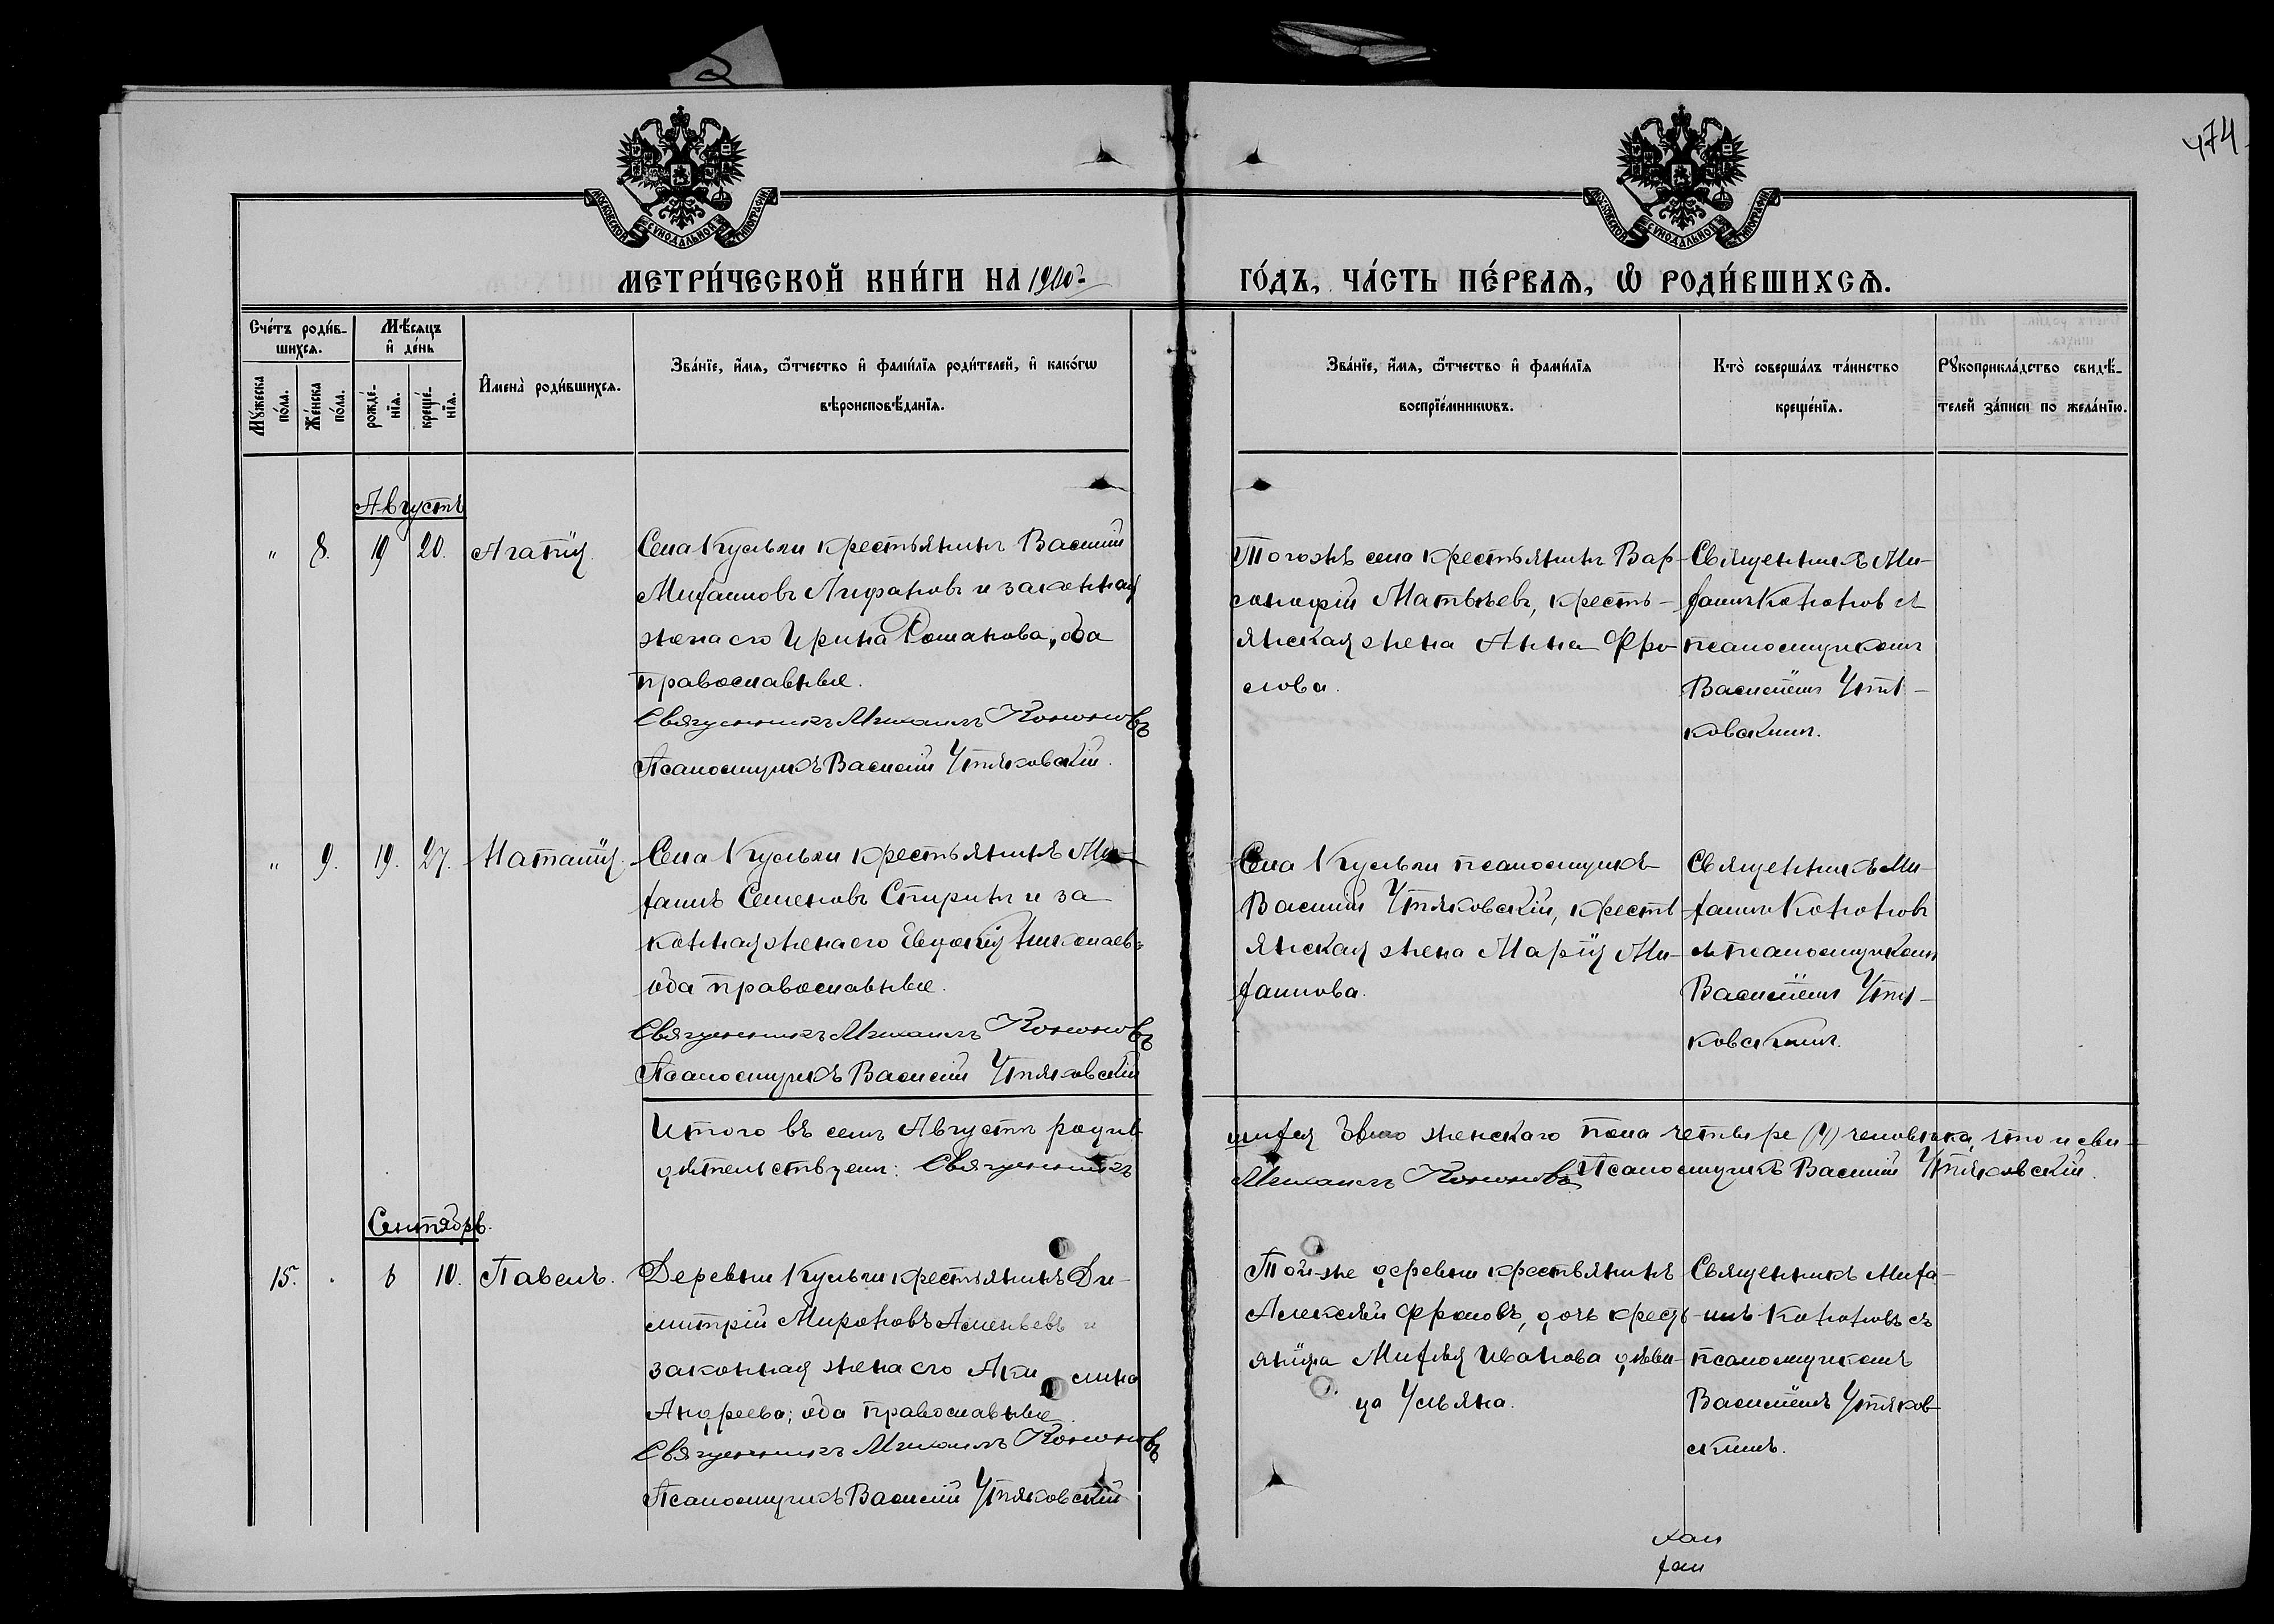 474
МОСКОВСКОЙ СѴНОДАЛЬНОЙ ТИПОГРАФІИ
МОСКОВСКОЙ СѴНОДАЛЬНОЙ ТИПОГРАФІИ
МЕТРИ́ЧЕСКОЙ КНИ́ГИ НА 1900й
ГО́ДЪ, ЧА́СТЬ ПЕ́РВАѦ, Ѡ҆ РОДИ́ВШИХСѦ.
Сче́тъ роди́в-
шихсѧ.
Мѣ́сѧцъ
и҆ де́нь
Мꙋ́жеска
по́ла.
Же́нска
по́ла.
рожде́-
нїѧ.
креще́-
нїѧ.
И҆мена̀ роди́вшихсѧ.
Зва́нїе, и҆́мѧ, ѻ҆́тчество и҆ фами́лїѧ роди́телей, и҆ како́гѡ
вѣроисповѣ́данїѧ.
Зва́нїе, и҆́мѧ, ѻ҆́тчество и҆ фами́лїѧ
воспрїе́мникѡвъ.
Кто̀ соверша́лъ та́инство
креще́нїѧ.
Рꙋкоприкла́дство свидѣ́-
телей за́писи по жела́нїю.
Августъ
" 8. 19 20. Агапія.
Села Кульги крестьянинъ Василій
Михаиловъ Агафановъ и законная
жена его Ирина Романова, оба
православные.
Священникъ Михаилъ Кононовъ
Псаломщикъ Василій Утяковскій.
Тогожъ села крестьянинъ Вар-
сонофій Матвѣевъ, кресть-
янская жена Анна Фро-
лова.
Священникъ Ми-
хаилъ Кононовъ съ
псаломщикомъ
Василіемъ Утя-
ковскимъ.
" 9. 19. 27. Наталія.
Села Кульги крестьянинъ Ми-
хаилъ Семеновъ Спиринъ и за
конная жена его Евдокія Николаев-
оба православные.
Священникъ Михаилъ Кононовъ
Псаломщикъ Василій Утяковскій
Села Кульги псаломщикъ
Василій Утяковскій, кресть
янская жена Марія Ми-
хаилова.
Священникъ Ми-
хаилъ Кононовъ
съ псаломщикомъ
Василіемъ Утя-
ковскимъ.
Итого въ семъ Августѣ родив
шихся было женскаго пола четыре (4) человѣка, что и сви-
дѣтельствуемъ: Священникъ
Михаилъ Кононовъ Псаломщикъ Василій Утяковскій.
Сентябрь.
15. . 6 10. Павелъ.
Деревни Кульги крестьянинъ Ди-
митрій Мироновъ и
законная жена его Аки лина
Андреева; оба православные.
Священникъ Михаилъ Кононовъ
Псаломщикъ Василій Утяковскій
Той-же деревни крестьянинъ
Алексѣй Фроловъ, дочь кресть-
янина Михѣя Иванова дѣви-
ца Ульяна.
Священникъ Миха-
илъ Кононовъ съ
псаломщикомъ
Василіемъ Утяков-
скимъ.
хаи
хаи